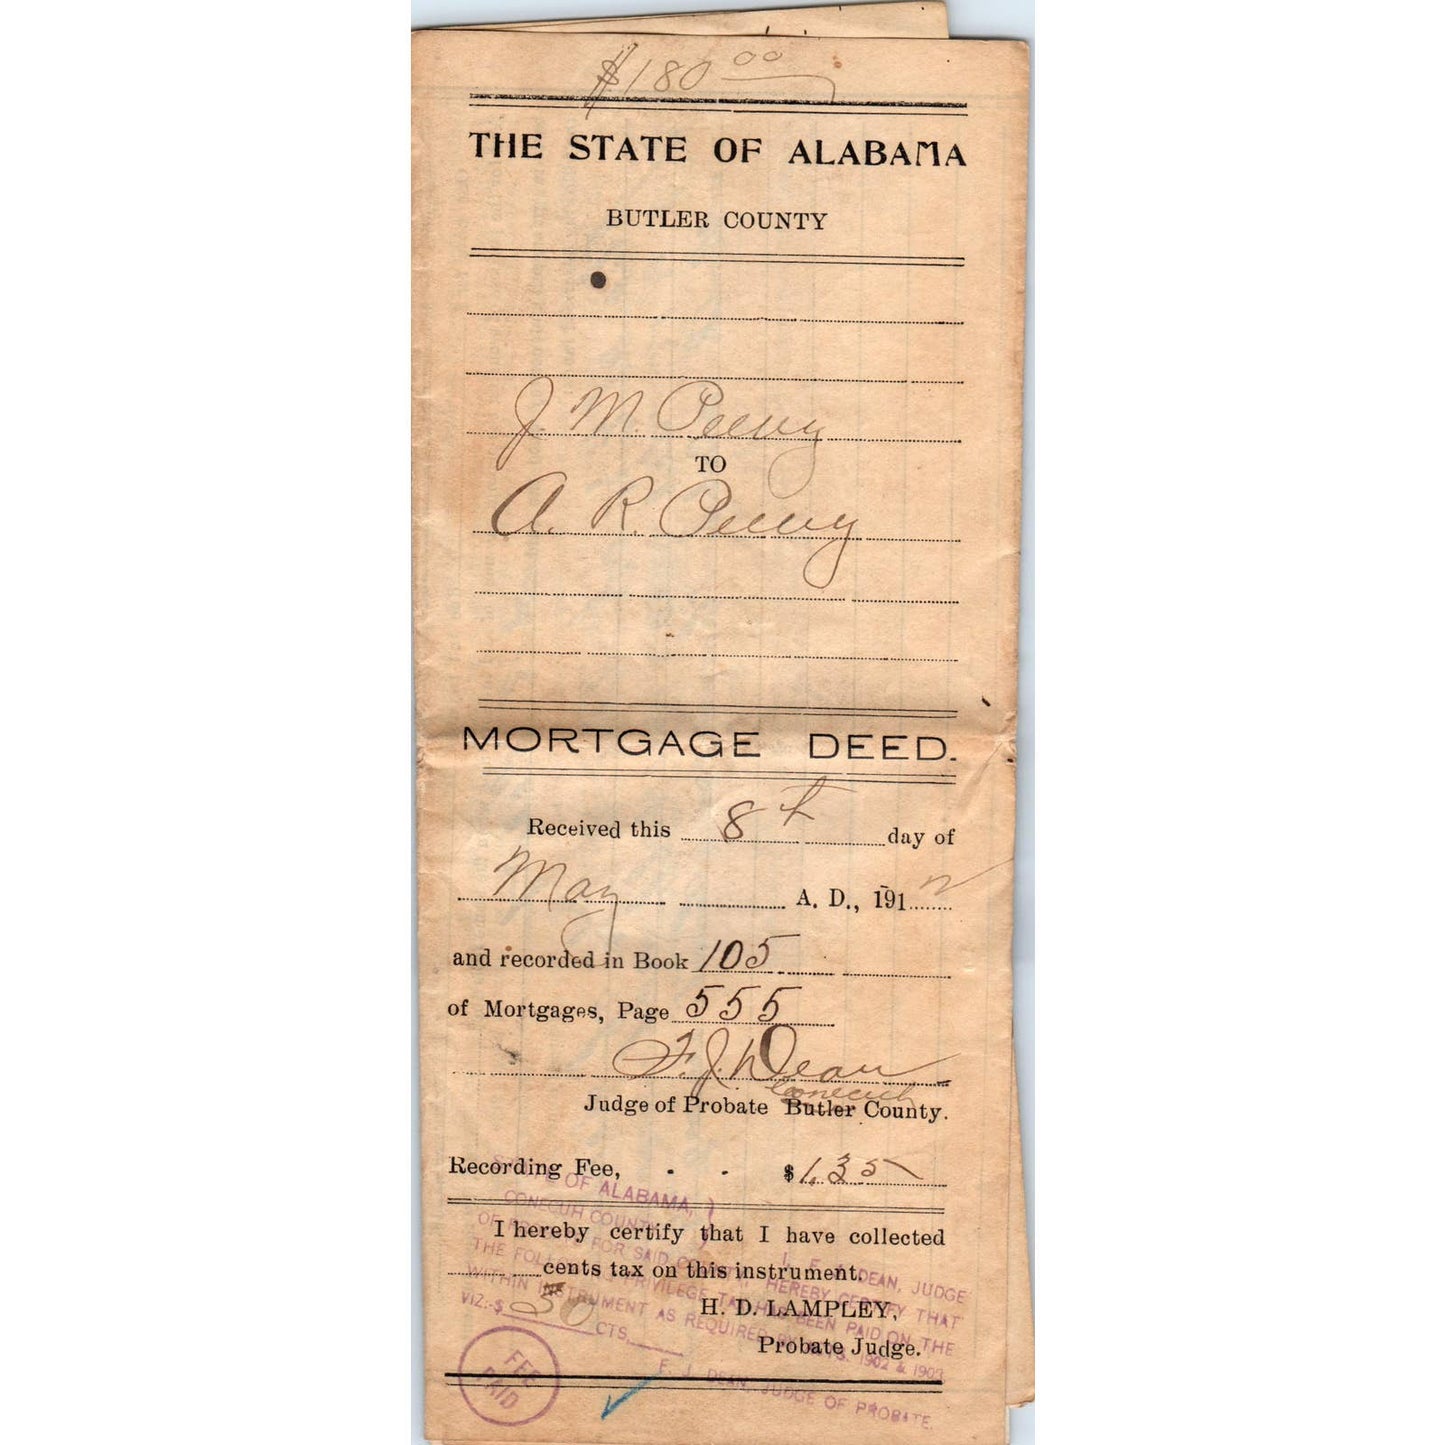 $180 00
THE STATE OF ALABAMA
BUTLER COUNTY
J. M. Peevy
TO
A. R. Peevy
MORTGAGE DEED.
Received this 8th day of
May A. D., 191 2
and recorded in Book 105
of Mortgages, Page 555
F. J. Dean
Conecuh
Judge of Probate Butler County.
Recording Fee, - - $ 1.35
STATE OF ALABAMA, }
CONECUH COUNTY
I, F. J. DEAN, JUDGE
OF PROBATE FOR SAID COUNTY, HEREBY CERTIFY THAT
THE FOLLOWING PRIVILEGE TAX HAS BEEN PAID ON THE
WITHIN INSTRUMENT AS REQUIRED BY ACTS. 1902 & 1903
VIZ:-$ 30 CTS.
F. J. DEAN, JUDGE OF PROBATE.
I hereby certify that I have collected
cents tax on this instrument.
H. D. LAMPLEY,
Probate Judge.
FEE
PAID